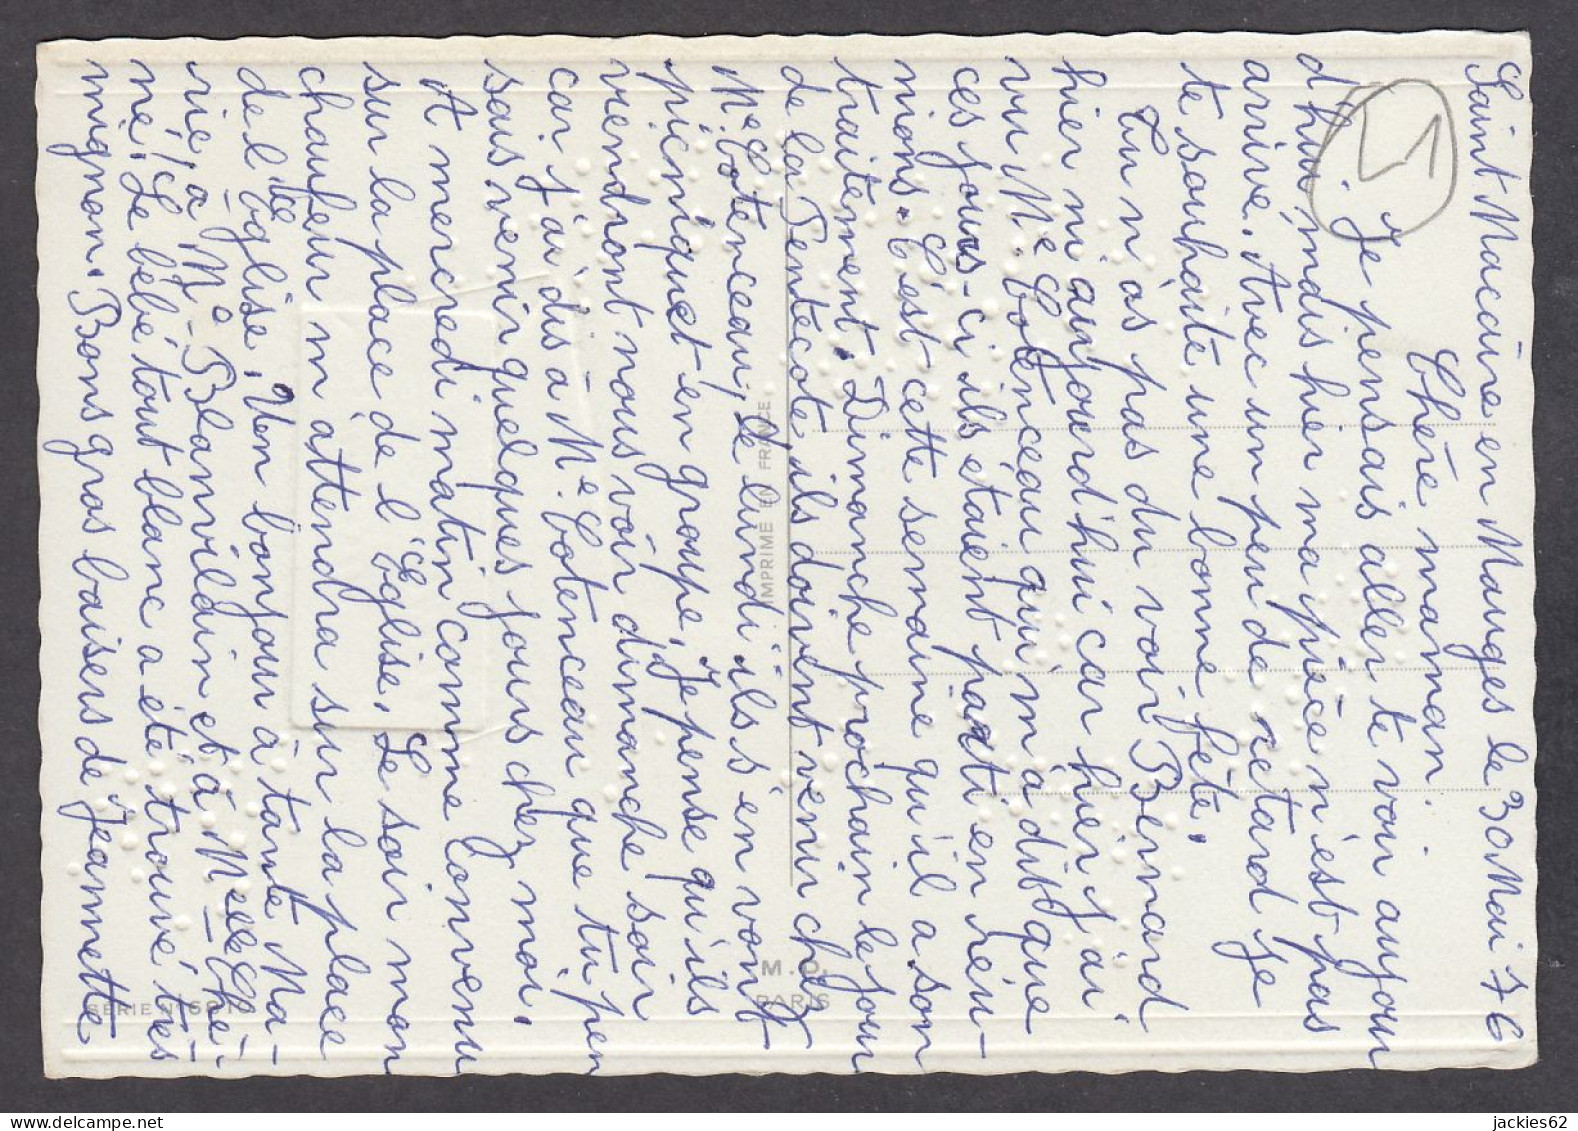 Saint Macaire en Mauges le 30 Mai 76
Chère maman.
Je pensais aller te voir aujour
d'hui mais hier ma pièce n'est pas
arrivé. Avec un peu de retard je
te souhaite une bonne fête.
Tu n'as pas du voir Bernard
hier ni aujourd'hui car hier j'ai
vu Me Cotenceau qui m'a dit que
ces jours-ci ils étaient parti en réu-
nions. C'est cette semaine qu'il a son
traitement. Dimanche prochain le jour
de la Pentecôte ils doivent venir chez
Me Cotenceau, le lundi ils s'en vont
pieniquet en groupe, Je pense qu'ils
viendront nous voir dimanche soir
car j'ai dis à Me Cotenceau que tu pen
sais venir quelques jours chez moi.
A mercredi matin comme convenu
sur la place de l'église. Le soir mon
chauffeur m'attendra sur la place
de l'église. Mon bonjour à tante Ma-
rie à Me Blanvilain et à Melle Ché-
né. Le bébé tout blanc a été trouvé très
mignon. Bons gros baisers de Jeannette
IMPRIMÉ EN FRANCE
M. D.
PARIS
SERIE N°
jackies62